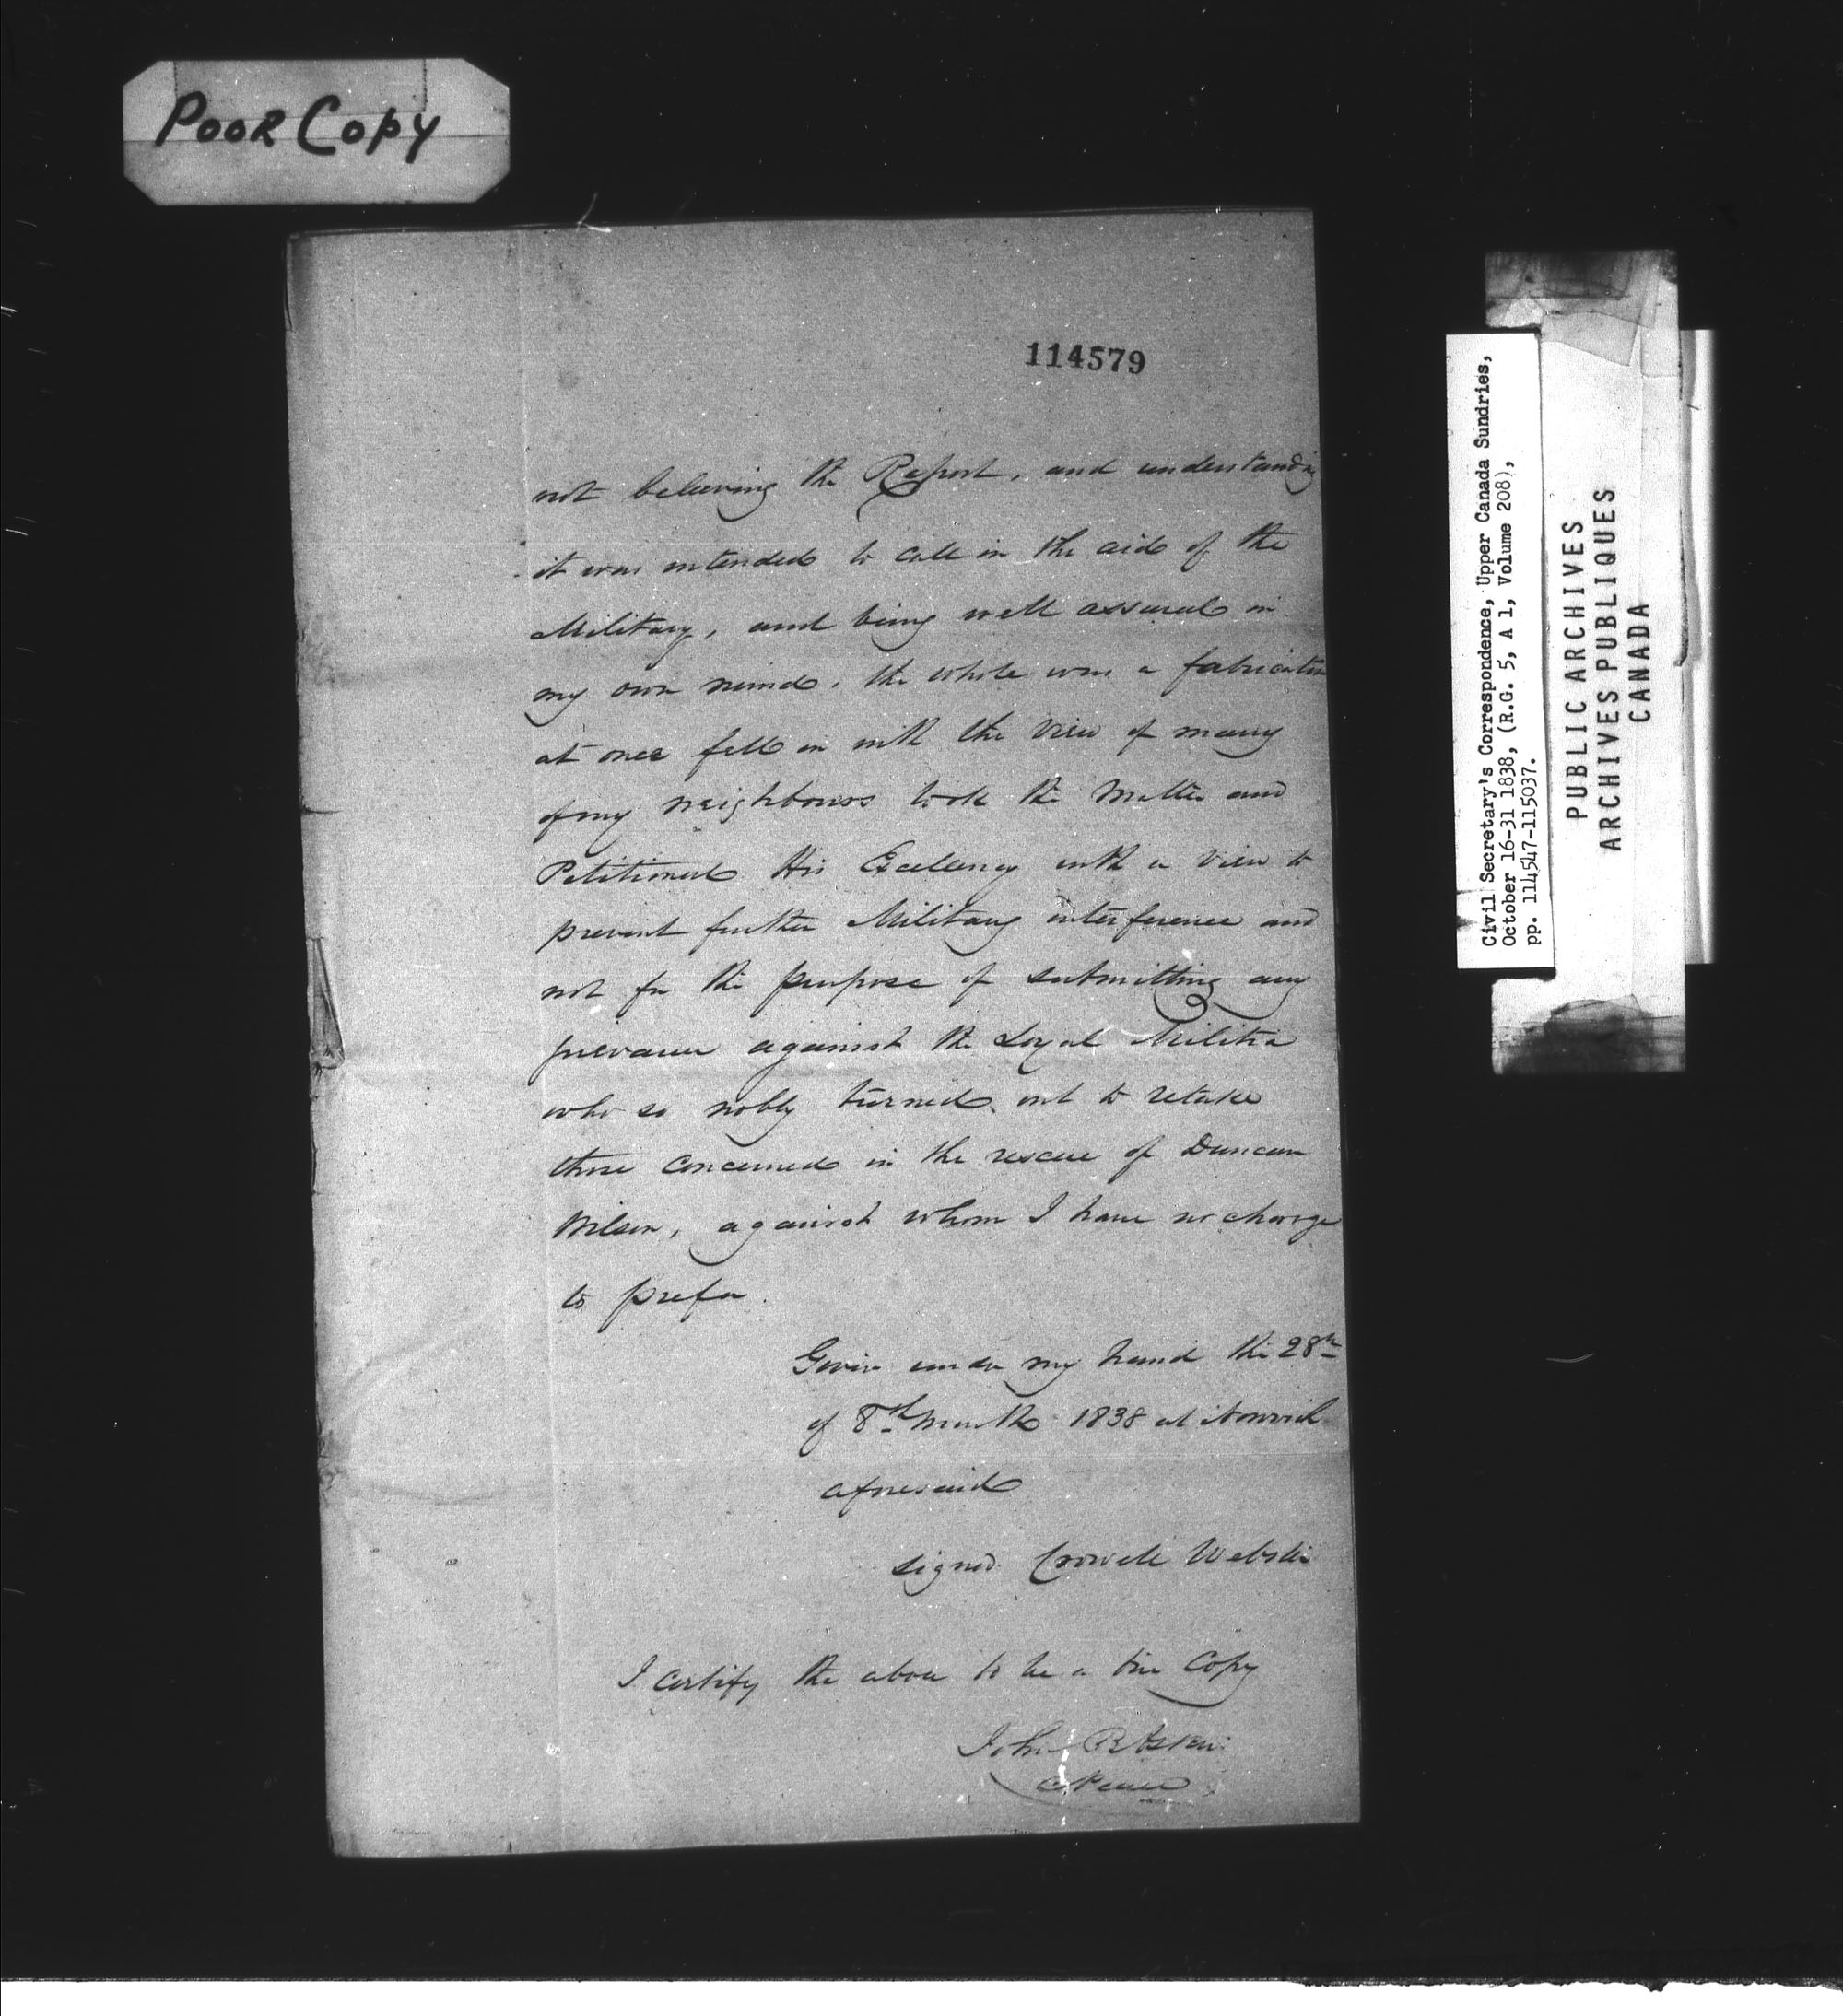 POOR COPY
114579
not believing the Report, and understanding
it was intended to call in the aid of the
Military, and being well assured in
my own mind, the whole was a fabrication
at once fell in with the view of many
of my neighbours took the Matter and
Petitioned His Excellency with a view to
prevent further Military interference and
not for the purpose of submitting any
grievance against the Loyal Militia
who so nobly turned out to retake
those concerned in the rescue of Duncan
Wilson, against whom I have no charge
to prefer.
Given under my hand the 28th
of 8th Month 1838 at Norwich
aforesaid
signed Crowell Webster
I certify the above to be a true Copy
John B Askin
C. Peace
Civil Secretary's Correspondence, Upper Canada Sundries,
October 16-31 1838, (R.G. 5, A 1, Volume 208),
pp. 114547-115037.
PUBLIC ARCHIVES
ARCHIVES PUBLIQUES
CANADA